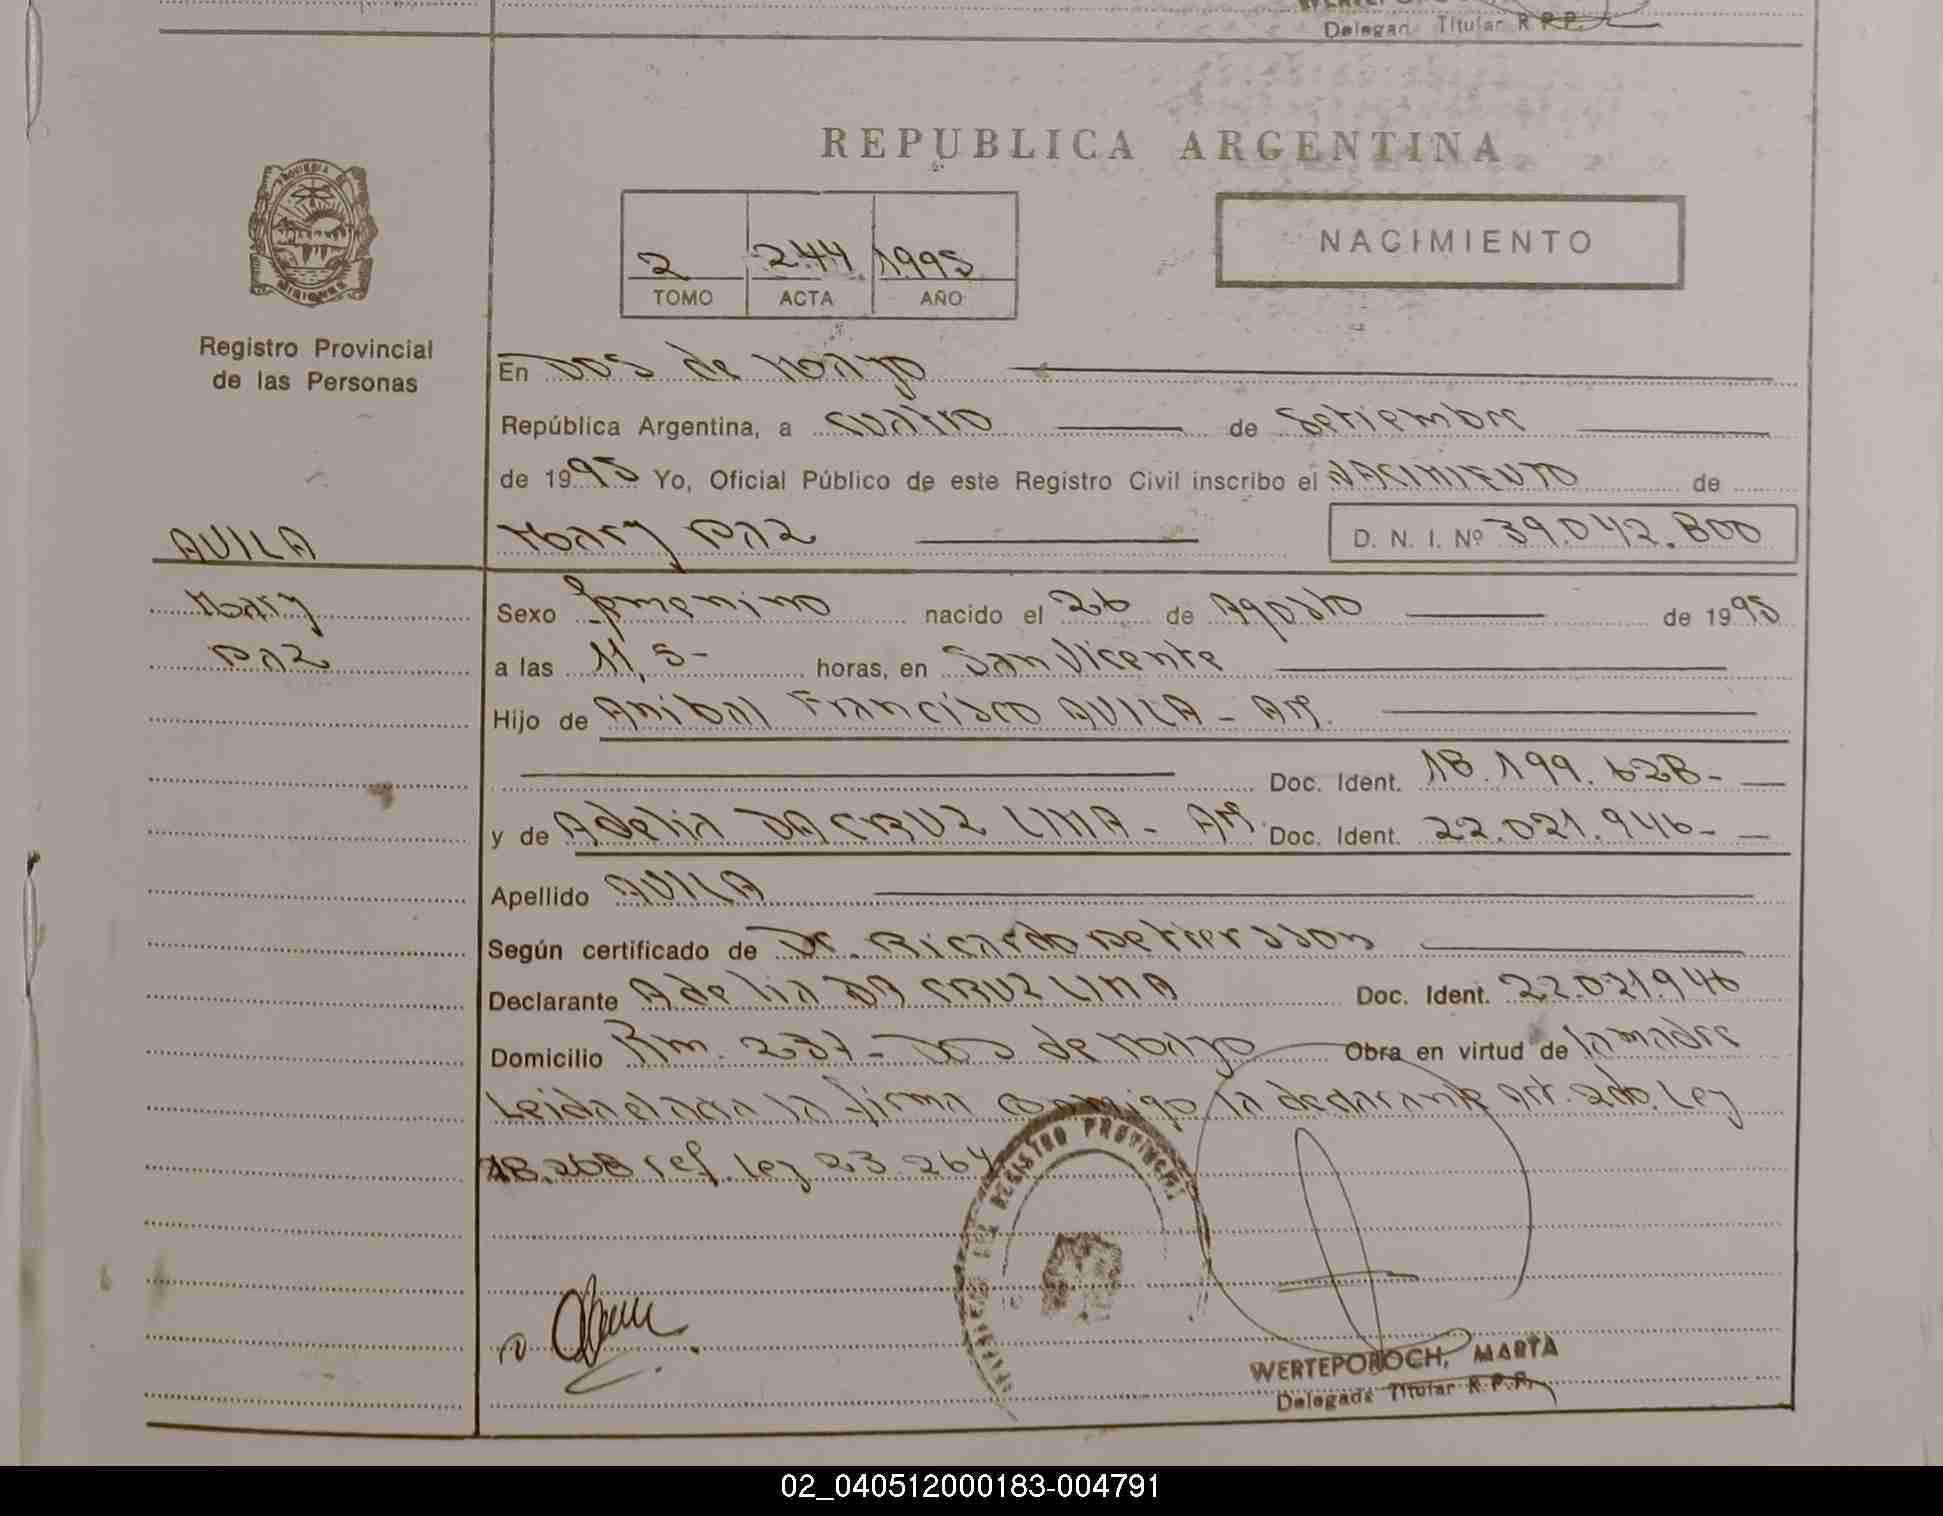 Delegan. Titular R.P.P.
REPUBLICA ARGENTINA
PROVINCIA DE
MISIONES
Registro Provincial
de las Personas
2 244 1995
TOMO ACTA AÑO
NACIMIENTO
En Dos de Mayo
República Argentina, a cuatro de Setiembre
de 1995 Yo, Oficial Público de este Registro Civil inscribo el NACIMIENTO de
AVILA
Mary Paz D. N. I. Nº 39.042.800
Mary
Paz
Sexo femenino nacido el 26 de Agosto de 1995
a las 11,5- horas, en San Vicente
Hijo de Anibal Francisco AVILA - Ar.
Doc. Ident. 18.199.628-
y de Adelia DA CRUZ LIMA - Ar. Doc. Ident. 22.021.946-
Apellido AVILA
Según certificado de Dr. Ricardo
Declarante Adelia DA CRUZ LIMA Doc. Ident. 22.021.946
Domicilio Km. 237 - Dos de Mayo Obra en virtud de la madre
Leida el acta la firma conmigo la declarante art. 2do. Ley
18.268 ref. ley 23.264
DEL REGISTRO PROVINCIAL
WERTEPOROCH, MARTA
Delegada Titular R.P.P.
02_040512000183-004791